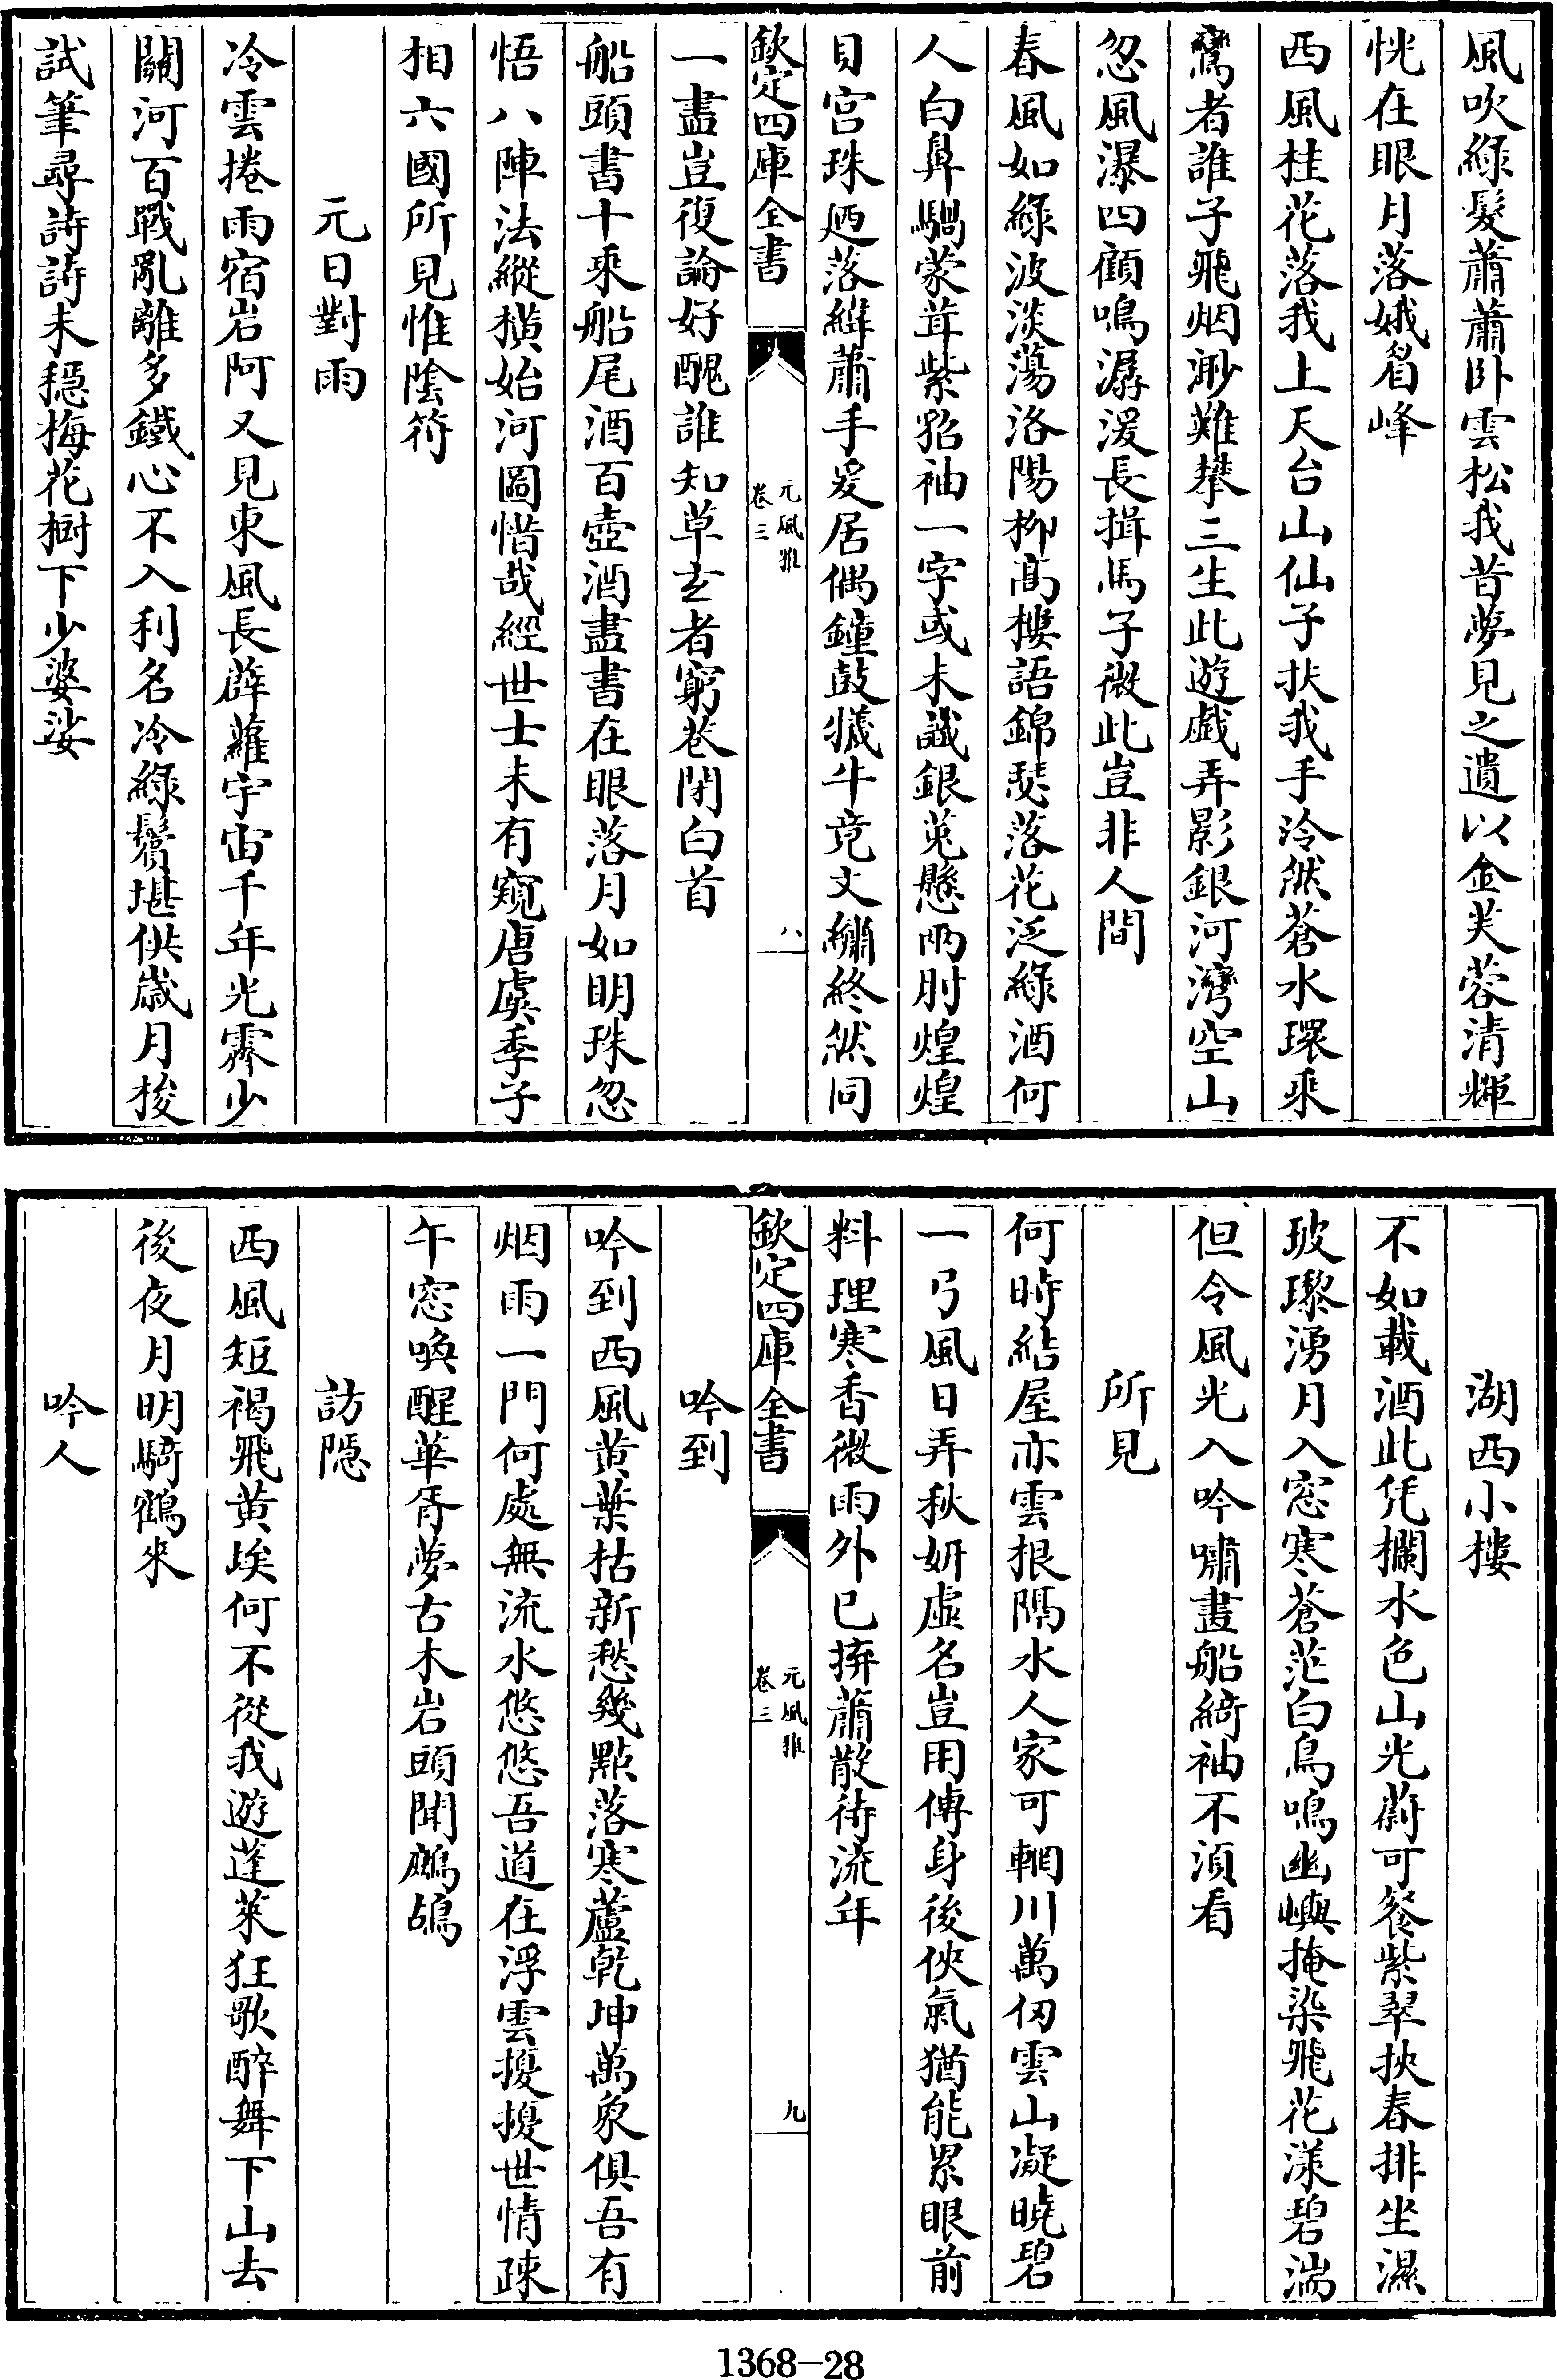 風吹綠髮蕭蕭卧雲松我昔夢見之遺以金芙蓉清輝
恍在眼月落娥眉峰
西風桂花落我上天台山仙子扶我手泠然蒼水環乘
鸞者誰子飛烟渺難攀三生此遊戯弄影銀河灣空山
忽風瀑四顧鳴潺湲長揖馬子微此豈非人間
春風如綠波淡蕩洛陽柳髙樓語錦瑟落花泛綠酒何
人白鼻騧蒙茸紫貂袖一字或未識銀莵懸兩肘煌煌
貝宫珠廼落緝蕭手爰居偶鐘鼓犧牛竟文繡終然同
欽定四庫全書
元風雅
卷三
八
一盡豈復論好醜誰知草玄者窮巷閉白首
船頭書十乘船尾酒百壺酒盡書在眼落月如明珠忽
悟八陣法縱橫始河圖惜哉經世士未有窺唐虞季子
相六國所見惟陰符
元日對雨
冷雲捲雨宿岩阿又見東風長薜蘿宇宙千年光霽少
關河百戰亂離多鐵心不入利名冷綠鬢堪供歲月梭
試筆尋詩詩未穩梅花樹下少婆娑
湖西小樓
不如載酒此凭欄水色山光蔚可餐紫翠挾春排坐濕
玻瓈湧月入窓寒蒼茫白鳥鳴幽嶼掩染飛花漾碧湍
但令風光入吟嘯畫船綺袖不須看
所見
何時結屋亦雲根隔水人家可輞川萬仭雲山凝曉碧
一弓風日弄秋妍虛名豈用傳身後俠氣猶能累眼前
料理寒香微雨外已拚蕭散待流年
欽定四庫全書
元風雅
卷三
九
吟到
吟到西風黄葉枯新愁幾點落寒蘆乾坤萬象俱吾有
烟雨一門何處無流水悠悠吾道在浮雲擾擾世情疎
午窓喚醒華胥夢古木岩頭聞鷓鴣
訪隱
西風短褐飛黄埃何不從我遊蓬萊狂歌醉舞下山去
後夜月明騎鶴來
吟人
1368-28